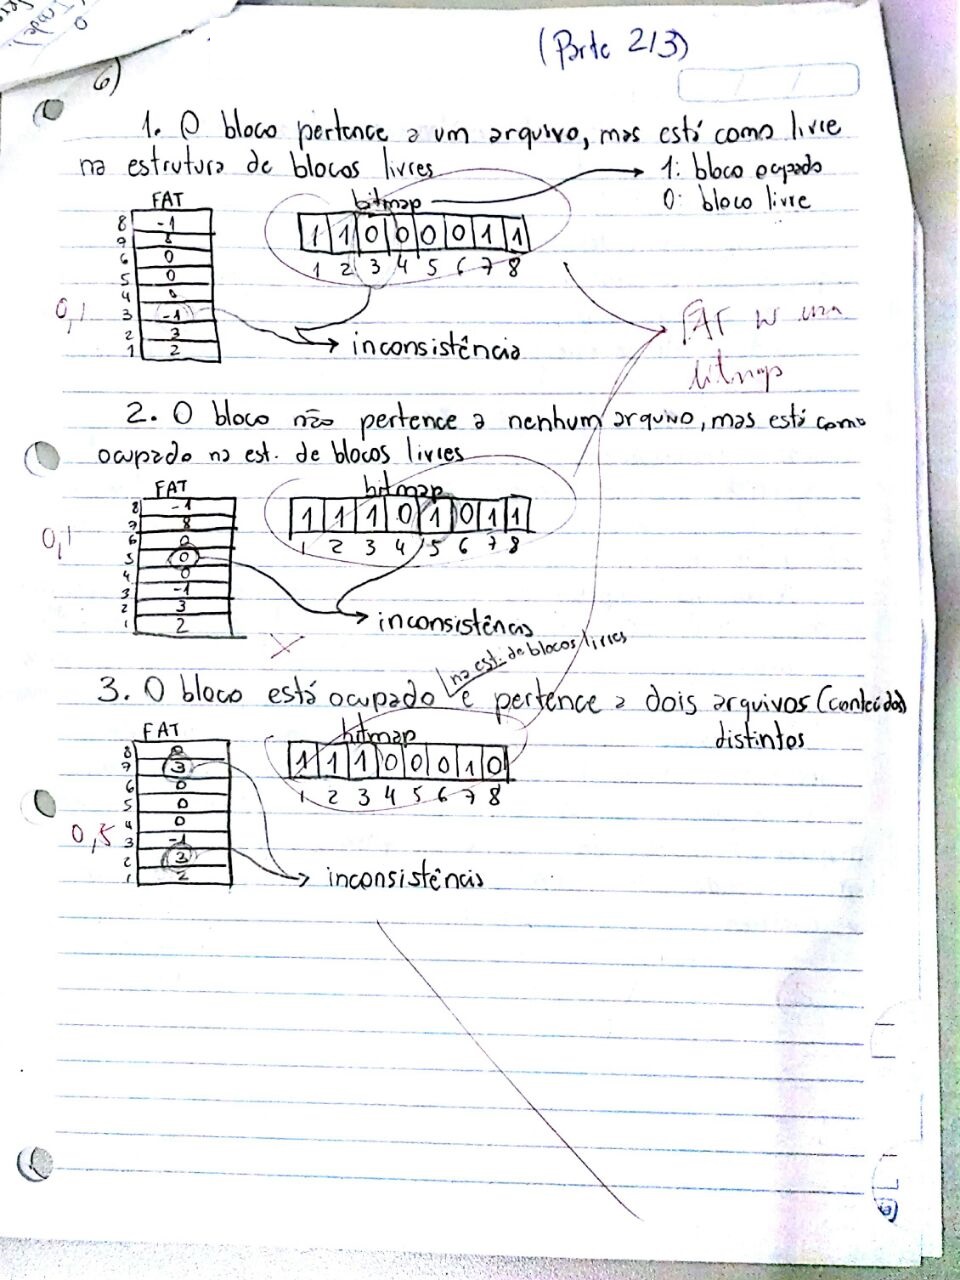 (Parte 2/3)
6)
1. O bloco pertence a um arquivo, mas está como livre
na estrutura de blocos livres
1: bloco ocupado
0: bloco livre
FAT
bitmap
8 -1
7 8
6 0
5 0
4 0
3 -1
2 3
1 2
1 1 0 0 0 0 1 1
1 2 3 4 5 6 7 8
0,1
inconsistência
FAT
bitmap
2. O bloco não pertence a nenhum arquivo, mas está como
ocupado na est. de blocos livres
FAT
bitmap
8 -1
7 8
6 0
5 0
4 0
3 -1
2 3
1 2
1 1 1 0 1 0 1 1
1 2 3 4 5 6 7 8
0,1
inconsistência
na est. de blocos livres
3. O bloco está ocupado e pertence a dois arquivos (conteúdos)
distintos
FAT
bitmap
8 0
7 3
6 0
5 0
4 0
3 -1
2 3
1 2
1 1 1 0 0 0 1 0
1 2 3 4 5 6 7 8
0,5
inconsistência